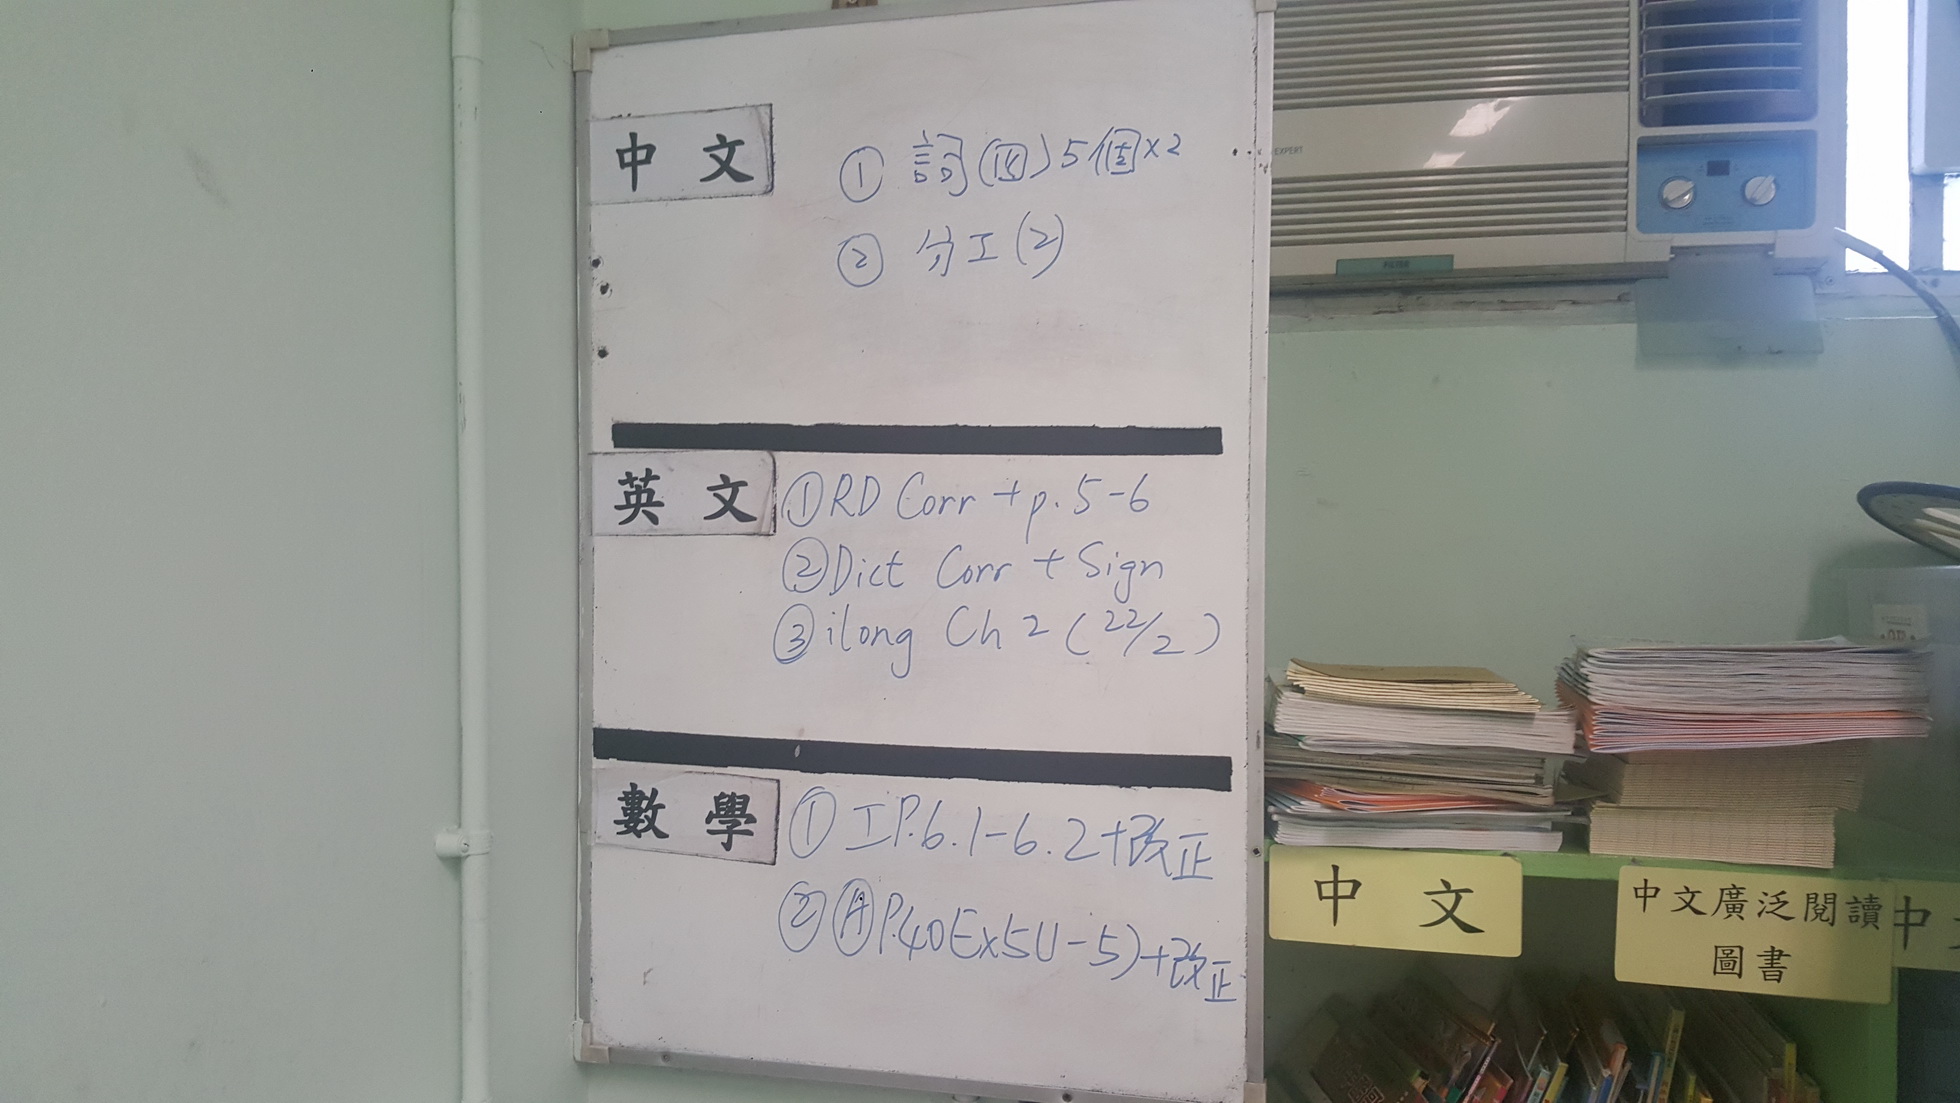 中文
① 詞(四)5個x2
② 分工(2)
英文
①RD Corr + p.5-6
②Dict Corr + Sign
③ilong Ch 2 (22/2)
數學
① 工P.6.1-6.2+改正
② Ⓐ P.40Ex5(1-5)+改正
EXPERT
中文
中文廣泛閱讀
圖書
中